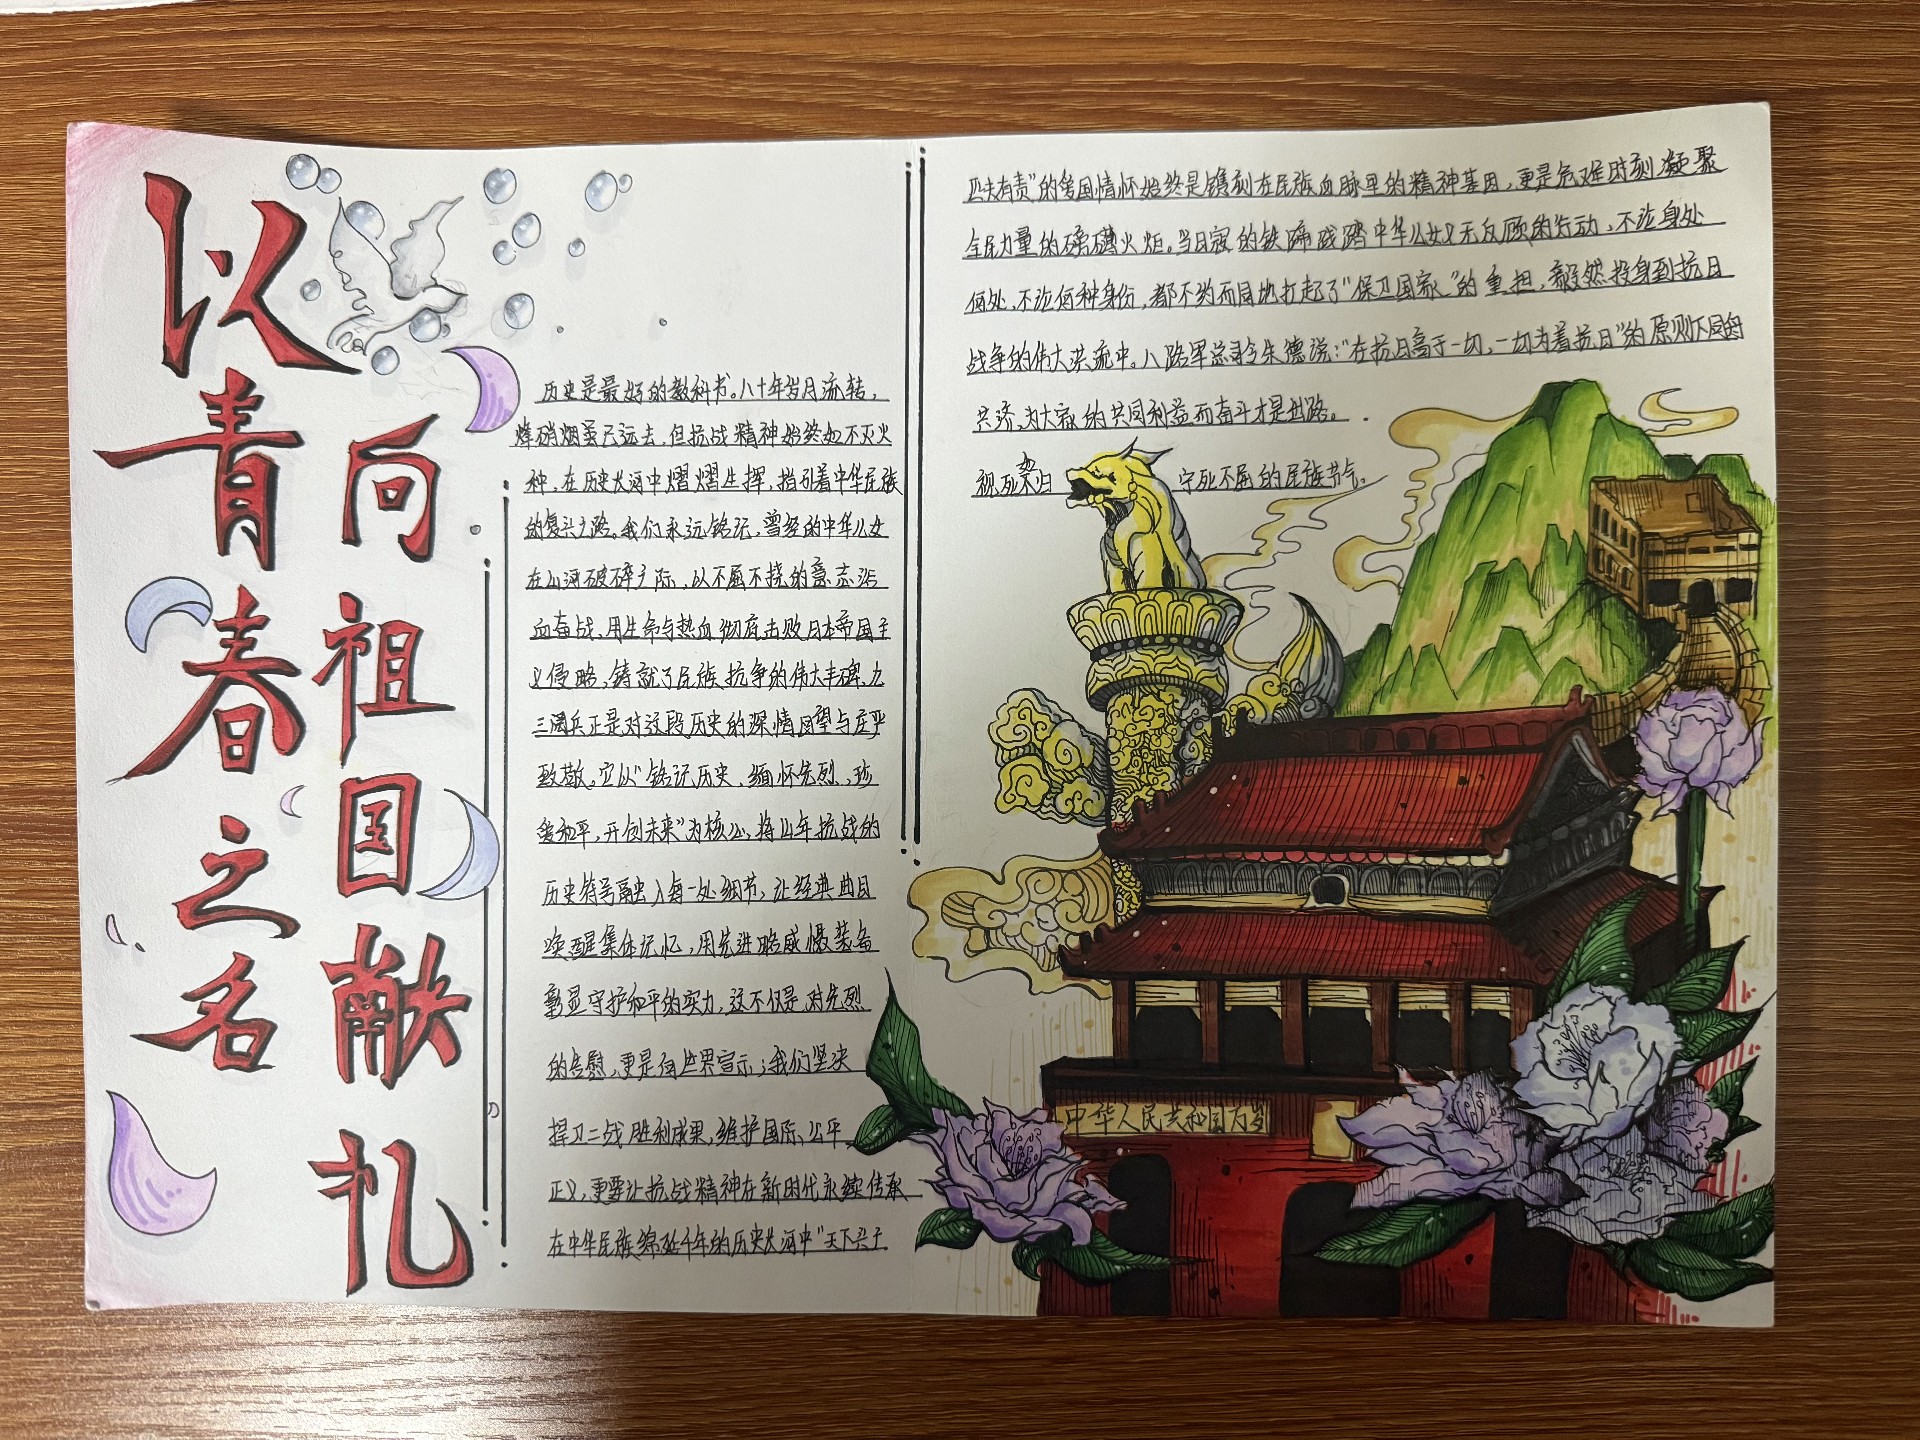 以青春之名
向祖国献礼
历史是最好的教科书。八十年岁月流转，
烽硝烟虽已远去，但抗战精神始终如不灭火
种，在历史长河中熠熠生辉，指引着中华民族
的复兴之路。我们永远铭记，曾经的中华儿女
在山河破碎之际，以不屈不挠的意志浴
血奋战、用生命与热血彻底击败日本帝国主
义侵略，铸就了民族抗争的伟大丰碑，九
三阅兵正是对这段历史的深情回望与庄严
致敬。它以"铭记历史、缅怀先烈、珍
爱和平，开创未来"为核心，将14年抗战的
历史符号融入每一处细节，让经典曲目
唤醒集体记忆，用先进 威慑装备
彰显守护和平的实力，这不仅是对先烈
的告慰，更是向世界宣示；我们坚决
捍卫二战胜利成果，维护国际、公平
正义，更要让抗战精神在新时代永续传承
在中华民族绵延千年的历史长河中"天下兴亡
匹夫有责"的爱国情怀始终是镌刻在民族血脉里的精神基因，更是危难时刻凝聚
全民力量的磅礴火炬。当日寇的铁蹄践踏中华儿女义无反顾的行动，不论身处
何处，不论何种身份，都不约而同地扛起了"保卫国家"的重担，毅然投身到抗日
战争的伟大洪流中。八路军总司令朱德说："在抗日高于一切，一切为着抗日"的原则下国的
共济，为大家的共同利益而奋斗才是出路。
视死如归 宁死不屈的民族节气。
中华人民共和国万岁